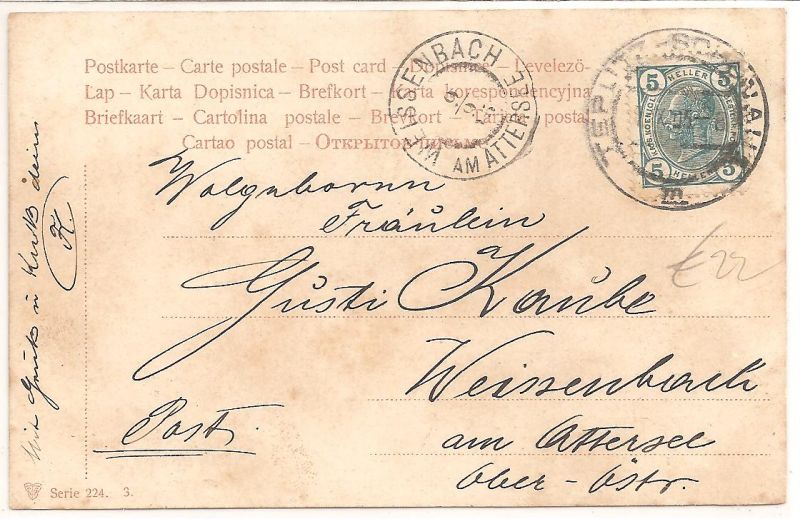 Postkarte – Carte postale – Post card – Dopisnice – Levelezö-
Lap – Karta Dopisnica – Brefkort – Karta korespondencyjna
Briefkaart – Cartolina postale – Brevkort – Tarjeta postal
Cartao postal – Открытое письмо
WEISSENBACH AM ATTERSEE
TEPLITZ-SCHÖNAU
5 HELLER 5
5 HELLER 5
Wolgeboren
Fräulein
Gusti Kaube
Weissenbach
am Attersee
Ober-Östr.
Post
Mit Gruß u Kuß deine
K
£22
Serie 224. 3.